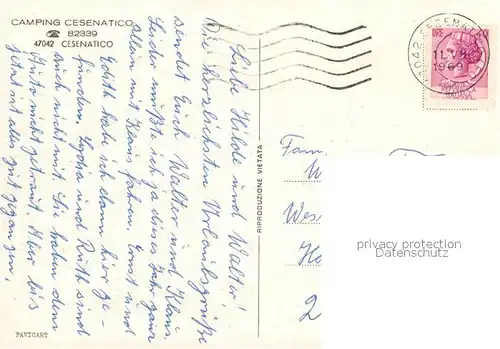 CAMPING CESENATICO
☎ 82339
47042 CESENATICO
Liebe Hilde und Walter!
Die herzlichsten Urlaubsgrüße
sendet Euch Walter und Klaus.
Leider mußte ich ja dieses Jahr ganz
allein mit Klaus fahren. Ernst und
Edith habe ich dann hier ge-
funden, Lydia und Ruth sind
auch nicht mit. Sie haben dem
Auto nicht getraut. Aber bis
jetzt ist alles gut gegangen,
PAVICART
RIPRODUZIONE VIETATA
47042 CESENATICO
1969
LIRE 40
Fam.
W
Wes
Ha
2
privacy protection
Datenschutz